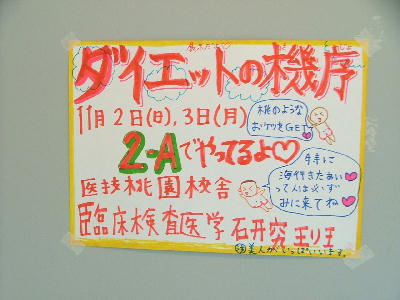 ダイエットの機序
11月2日(日),3日(月)
桃のような
おケツをGET!
2-Aでやってるよ♡
医技桃園校舎
特に
海行きたぁい
って人は必ず
みに来てね
臨床検査医学石开究王里王
美人がいっぱいいます。